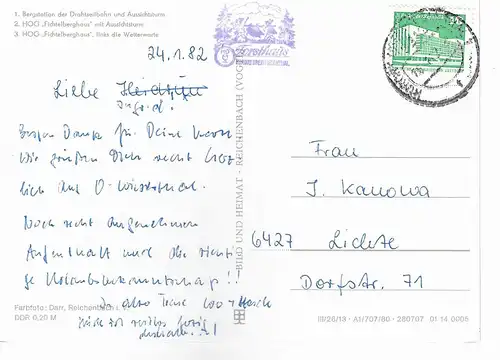 1. Bergstation der Drahtseilbahn und Aussichtsturm
2. HOG „Fichtelberghaus“ mit Aussichtsturm
3. HOG „Fichtelberghaus“, links die Wetterwarte
24.1.82
Liebe
Ingrid!
Besten Dank für Deine Karte
Wir grüßen Dich recht herz
lich aus O-Wiesenthal.
Noch recht angenehmen
Aufenthalt und die richti
ge Urlaubsbekanntschaft!!
In alter
Farbfoto: Darr, Reichenbach i. V.
DDR 0,20 M
BILD UND HEIMAT · REICHENBACH (VOGTL
Frau
I. Kanowa
6427 Lichte
Dorfstr. 71
III/26/13 · A1/707/80 · 280707 01 14 0005